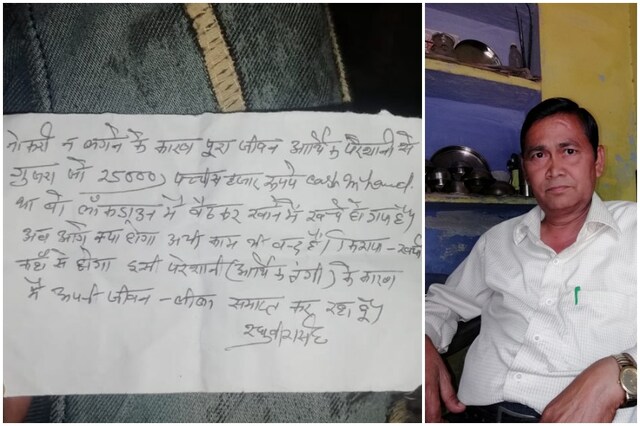 नोकरी न लगने के कारण पूरा जीवन आर्थिक परेशानी से
गुजरा जो 25000/ पच्चीस हजार रूपये cash in hand
था वो लॉकडाउन में बैठकर खाने में खर्च हो गए है।
अब आगे क्या होगा अभी काम भी बन्द है। किराया - खर्चा
कहाँ से होगा इसी परेशानी (आर्थिक तंगी) के कारण
मैं अपनी जीवन - लीला समाप्त कर रहा हूँ।